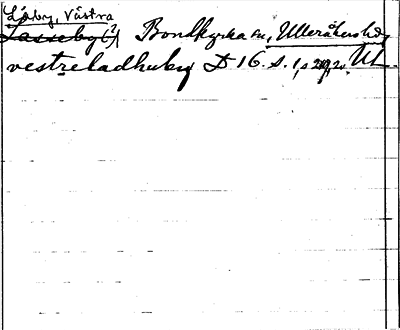 Läby, Västra
Lasseby(?) Bondkyrka sn, Ulleråkers hd,
vestreladhuby D 16. s. 1, Ul.